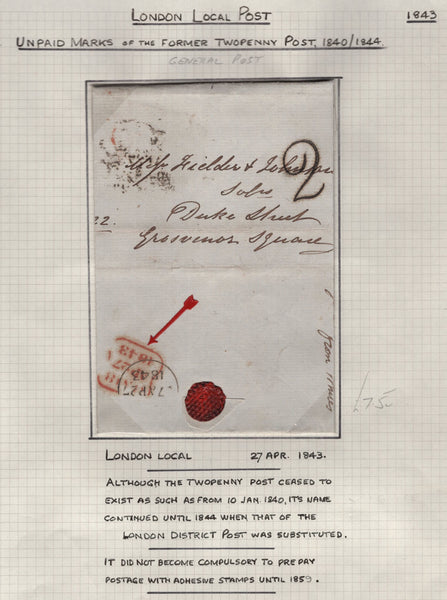 LONDON LOCAL POST
1843
UNPAID MARKS OF THE FORMER TWOPENNY POST, 1840/1844.
GENERAL POST
Messrs Fielder & Johnson
Solrs
Duke Street
Grosvenor Square
22.
2
1843
27
1843
from 11 miles
£75
LONDON LOCAL 27 APR. 1843.
ALTHOUGH THE TWOPENNY POST CEASED TO
EXIST AS SUCH AS FROM 10 JAN. 1840, IT'S NAME
CONTINUED UNTIL 1844 WHEN THAT OF THE
LONDON DISTRICT POST WAS SUBSTITUTED.
IT DID NOT BECOME COMPULSORY TO PREPAY
POSTAGE WITH ADHESIVE STAMPS UNTIL 1859.